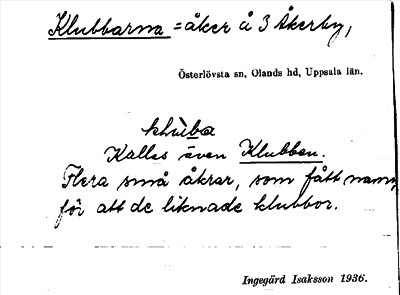 Klubbarna = åker å 3 Åkerby,
Österlövsta sn, Olands hd, Uppsala län.
Kalles även Klubben.
Flera små åkrar, som fått namn,
för att de liknade klubbor.
Ingegärd Isaksson 1936.